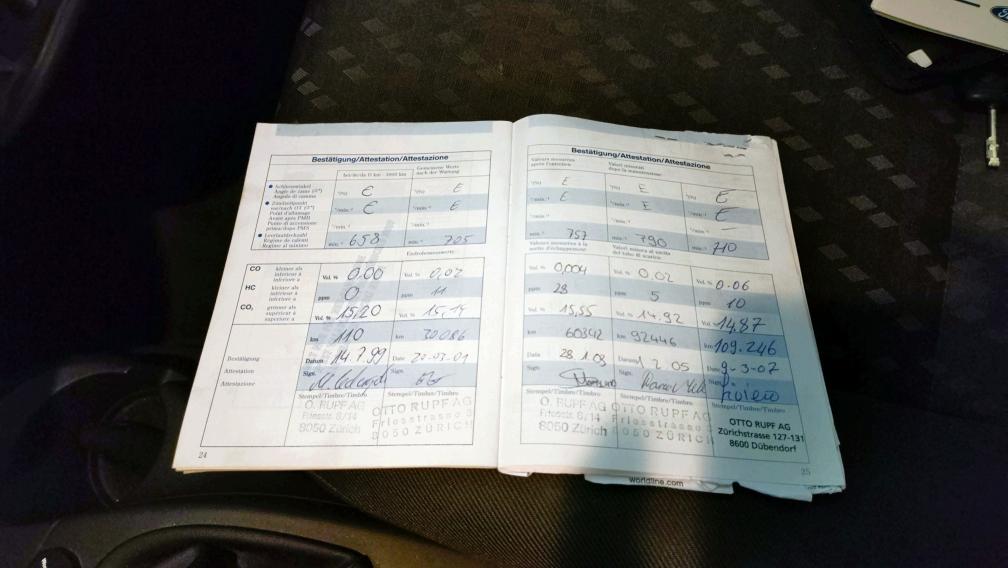 Bestätigung/Attestation/Attestazione
bei/de/da 0 km - 1000 km
Gemessene Werte nach der Wartung
Schliesswinkel
Angle de came
Angolo di camma
°/% E °/% E
Zündzeitpunkt
vor/nach OT
Point d'allumage
Avant après PMH
Punto di accensione
prima/dopo PMS
°/min⁻¹ E °/min⁻¹ E
Leerlaufdrehzahl
Régime de ralenti
Regime al minimo
min⁻¹ 658 min⁻¹ 705
CO kleiner als
inférieur à
inferiore a
Vol. % 0.00 Vol. % 0,02
HC kleiner als
inférieur à
inferiore a
ppm 0 ppm 11
CO₂ grösser als
supérieur à
superiore a
Vol. % 15,20 Vol. % 15,14
km 110 km 30086
Bestätigung
Datum 14.7.99 Date
Attestation
Sign. Sign.
Attestazione
Stempel/Timbre/Timbro Stempel/Timbre/Timbro
O. RUPF AG
Friesstr. 8/14
8050 Zürich
OTTO RUPF AG
Friesstrasse
8050 ZÜRICH
24
Bestätigung/Attestation/Attestazione
Valeurs mesurées après l'entretien
Valori misurati dopo la manutenzione
°/% E °/% E E
°/min⁻¹ E °/min⁻¹ E E
min⁻¹ 757 min⁻¹ 790 710
Vol. % 0,004 Vol. % 0.02 Vol. % 0.06
ppm 28 ppm 5 ppm 10
Vol. % 15,55 Vol. % 14.92 Vol. % 14.87
km 60342 km 92446 km 109.246
Date 28.1.03 Datum 1 2 05 9-3-07
Sign. Sign. Sign.
Stempel/Timbre/Timbro Stempel/Timbre/Timbro Stempel/Timbre/Timbro
O. RUPF AG
Friesstr. 8/14
8050 Zürich
OTTO RUPF AG
Friesstrasse
8050 ZÜRICH
OTTO RUPF AG
Zürichstrasse 127-131
8600 Dübendorf
25
worldline.com